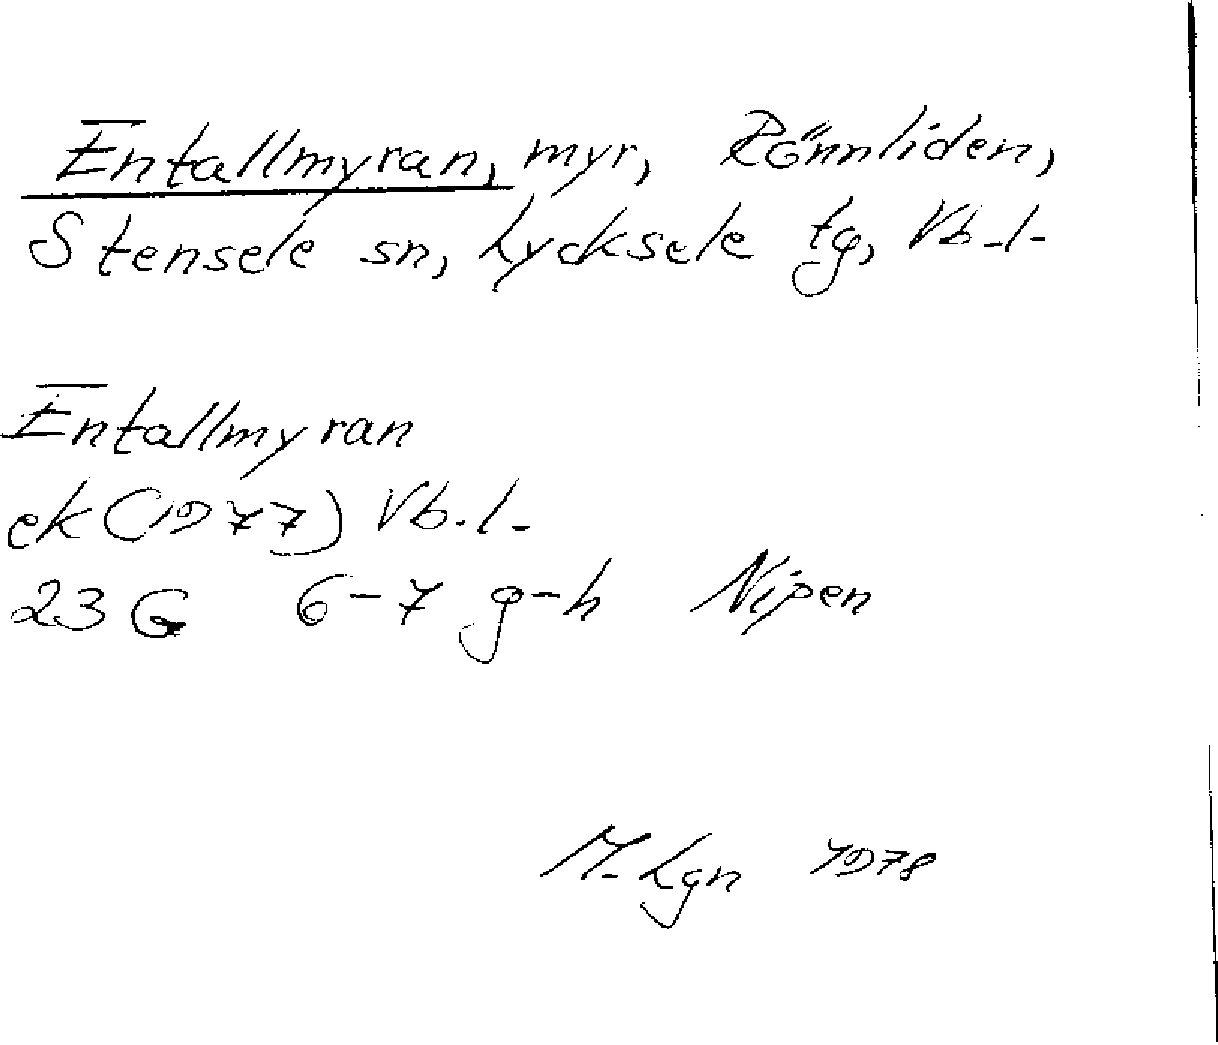 Entallmyran, myr, Rönnliden,
Stensele sn, Lycksele tg, Vb.l.
Entallmyran
ek (1977) Vb.l.
23 G 6-7 g-h Nipen
M. Lgn 1978